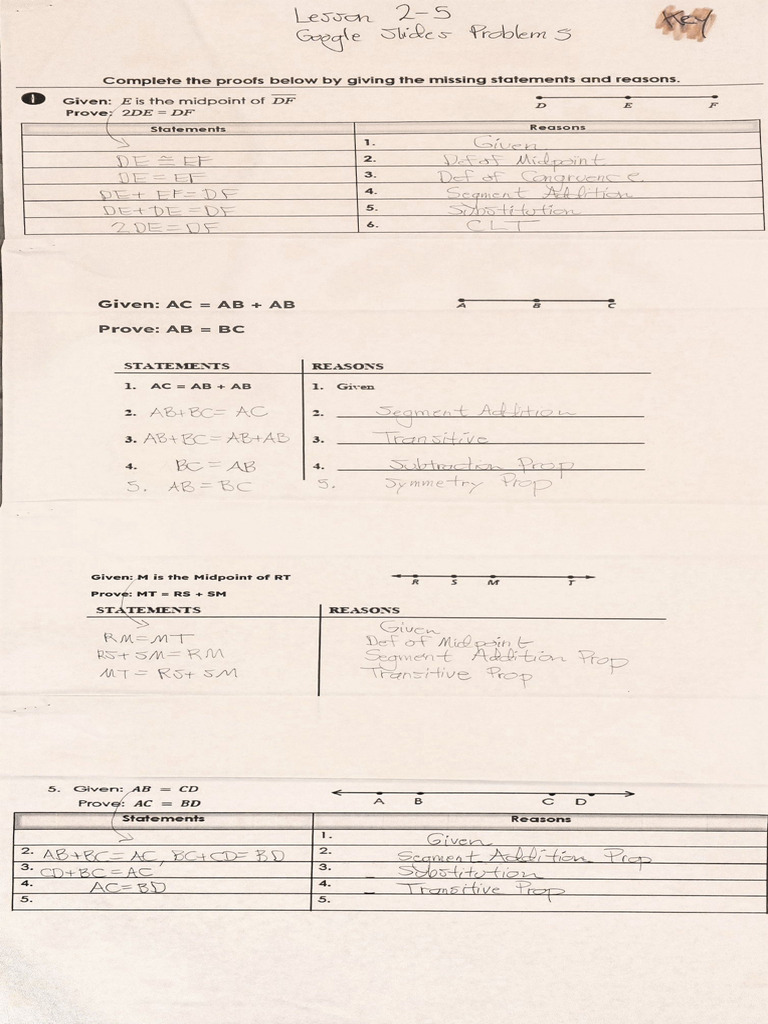 Lesson 2-5
Key
Google Slides Problems
Complete the proofs below by giving the missing statements and reasons.
1 Given: E is the midpoint of DF
Prove: 2DE = DF
D E F
Statements Reasons
1. Given
DE ≅ EF 2. Def of Midpoint
DE = EF 3. Def of Congruence
DE + EF = DF 4. Segment Addition
DE + DE = DF 5. Substitution
2DE = DF 6. CLT
Given: AC = AB + AB
A B C
Prove: AB = BC
STATEMENTS REASONS
1. AC = AB + AB 1. Given
2. AB+BC = AC 2. Segment Addition
3. AB+BC = AB+AB 3. Transitive
4. BC = AB 4. Subtraction Prop
5. AB = BC 5. Symmetry Prop
Given: M is the Midpoint of RT
R S M T
Prove: MT = RS + SM
STATEMENTS REASONS
Given
RM = MT Def of Midpoint
RS + SM = RM Segment Addition Prop
MT = RS + SM Transitive Prop
5. Given: AB = CD
A B C D
Prove: AC = BD
Statements Reasons
1. Given
2. AB+BC = AC, BC+CD = BD 2. Segment Addition Prop
3. CD+BC = AC 3. Substitution
4. AC = BD 4. Transitive Prop
5. 5.